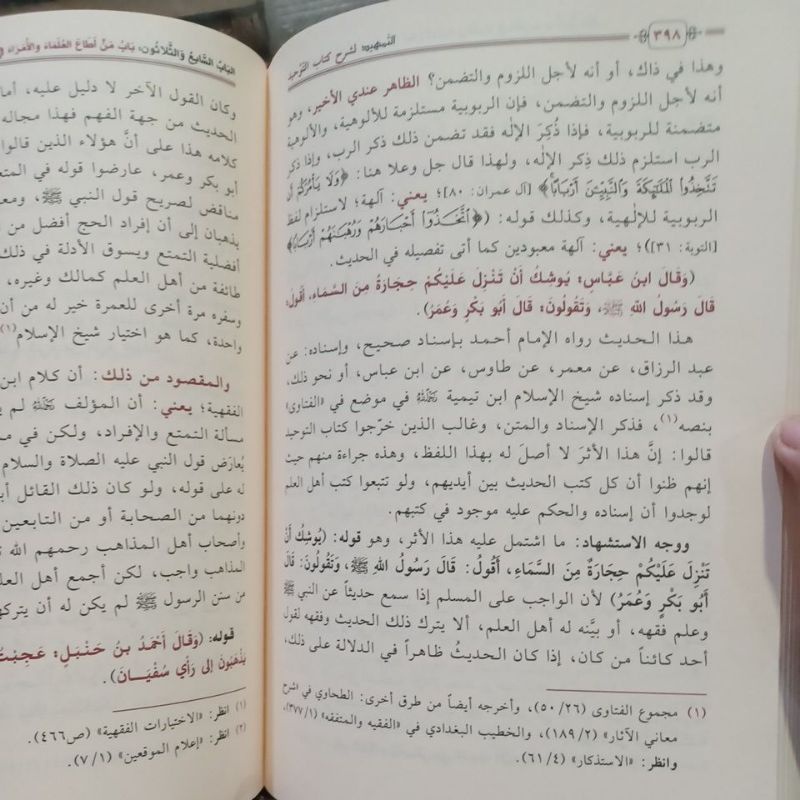 ٣٩٨
التمهيد لشرح كتاب التوحيد
وهذا في ذاك، أو أنه لأجل اللزوم والتضمن؟ الظاهر عندي الأخير، وهو
أنه لأجل اللزوم والتضمن، فإن الربوبية مستلزمة للألوهية، والألوهية
متضمنة للربوبية، فإذا ذُكِرَ الإله فقد تضمن ذلك ذكر الرب، وإذا ذكر
الرب استلزم ذلك ذِكر الإله، ولهذا قال جل وعلا هنا: ﴿وَلَا يَأْمُرَكُمْ أَن
تَتَّخِذُوا۟ الْمَلَٰٓئِكَةَ وَالنَّبِيِّـۧنَ أَرْبَابًا﴾ [آل عمران: ٨٠]؛ يعني: آلهة؛ لاستلزام لفظ
الربوبية للإلهية، وكذلك قوله: (﴿اتَّخَذُوٓا۟ أَحْبَارَهُمْ وَرُهْبَٰنَهُمْ أَرْبَابًا﴾
[التوبة: ٣١])؛ يعني: آلهة معبودين كما أتى تفصيله في الحديث.
(وَقَالَ ابنُ عَبَّاس: يُوشِكُ أَنْ تَنْزِلَ عَلَيْكُمْ حِجَارَةٌ مِنَ السَّمَاءِ، أَقُولُ:
قَالَ رَسُولُ اللهِ ﷺ، وَتَقُولُونَ: قَالَ أَبُو بَكْرٍ وَعُمَرُ).
هذا الحديث رواه الإمام أحمد بإسناد صحيح، وإسناده: عن
عبد الرزاق، عن معمر، عن طاوس، عن ابن عباس، أو نحو ذلك،
وقد ذكر إسناده شيخ الإسلام ابن تيمية رحمه الله في موضع في «الفتاوى»
بنصه(١)، فذكر الإسناد والمتن، وغالب الذين خرّجوا كتاب التوحيد
قالوا: إنَّ هذا الأثرَ لا أصلَ له بهذا اللفظ، وهذه جراءة منهم حيث
إنهم ظنوا أن كل كتب الحديث بين أيديهم، ولو تتبعوا كتب أهل العلم
لوجدوا أن إسناده والحكم عليه موجود في كتبهم.
ووجه الاستشهاد: ما اشتمل عليه هذا الأثر، وهو قوله: (يُوشِكُ أَنْ
تَنْزِلَ عَلَيْكُمْ حِجَارَةٌ مِنَ السَّمَاءِ، أَقُولُ: قَالَ رَسُولُ اللهِ ﷺ، وَتَقُولُونَ: قَالَ
أَبُو بَكْرٍ وَعُمَرُ) لأن الواجب على المسلم إذا سمع حديثاً عن النبي ﷺ
وعلم فقهه، أو بيَّنه له أهل العلم، ألا يترك ذلك الحديث وفقهه لقول
أحد كائناً من كان، إذا كان الحديثُ ظاهراً في الدلالة على ذلك،
(١) مجموع الفتاوى (٥٠/٢٦)، وأخرجه أيضاً من طرق أخرى: الطحاوي في «شرح
معاني الآثار» (١٨٩/٢)، والخطيب البغدادي في «الفقيه والمتفقه» (٣٧٧/١)،
وانظر: «الاستذكار» (٦١/٤).
الباب السَّابع والثَّلاثون، بَابُ مَنْ أَطَاعَ العُلَمَاءَ والأُمَرَاءَ
وكان القول الآخر لا دليل عليه، أما
الحديث من جهة الفهم فهذا مجاله
كلامه هذا على أنَّ هؤلاء الذين قالوا
أبو بكر وعمر، عارضوا قوله في
مناقض لصريح قول النبي ﷺ،
يذهبان إلى أن إفراد الحج أفضل من
أفضلية التمتع ويسوق الأدلة في ذلك
طائفة من أهل العلم كمالك وغيره،
وسفره مرة أخرى للعمرة خير له من أن
واحدة، كما هو اختيار شيخ الإسلام(١)
والمقصود من ذلك: أن كلام ابن
الفقهية؛ يعني: أن المؤلف رحمه الله لم
مسألة التمتع والإفراد، ولكن في
يُعارَض قول النبي عليه الصلاة والسلام
له على قوله، ولو كان ذلك القائل
دونهما من الصحابة أو من التابعين
وأصحاب أهل المذاهب رحمهم الله
المذاهب واجب، لكن أجمع أهل
من سنن الرسول ﷺ لم يكن له أن
قوله: (وَقَالَ أَحْمَدُ بنُ حَنْبَلٍ: عَجِبْتُ
يَذْهَبُونَ إِلى رَأْيِ سُفْيَـانَ).
(١) انظر: «الاختيارات الفقهية» (ص٤٦٦).
(٢) انظر: «إعلام الموقعين» (٧/١).